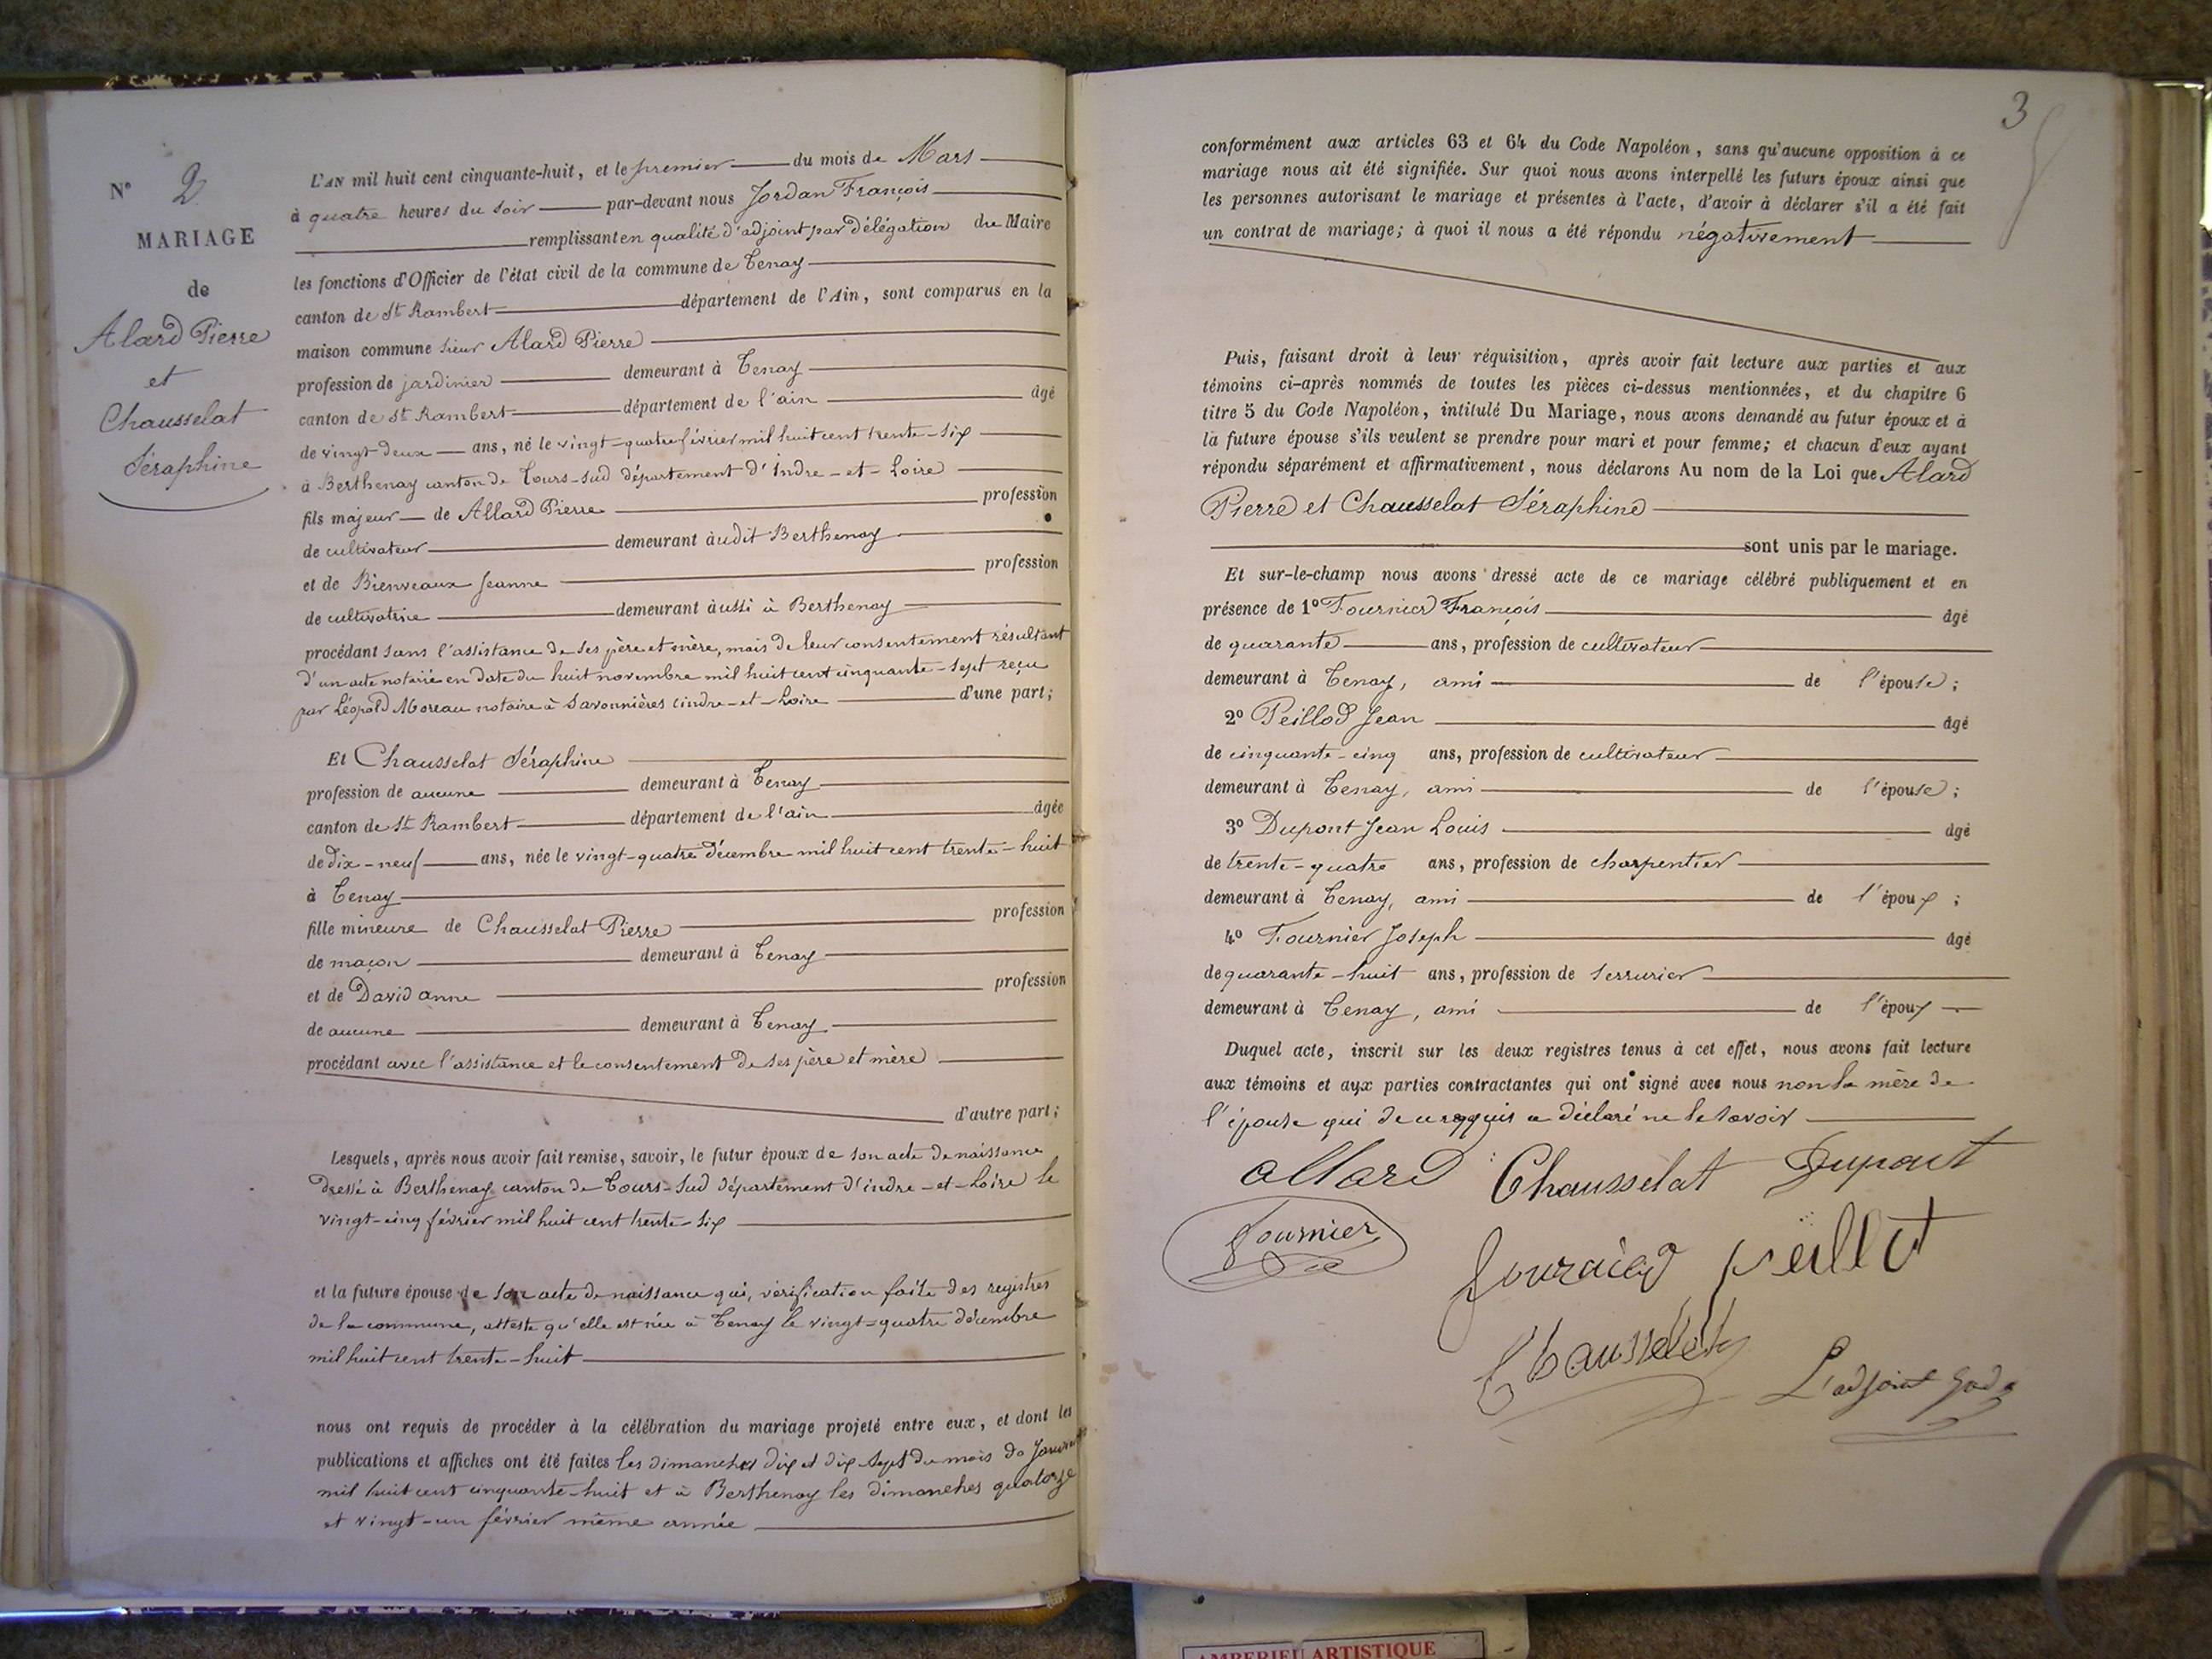 N° 2
MARIAGE
de
Alard Pierre
et
Chausselat
Séraphine
L'AN mil huit cent cinquante-huit, et le premier du mois de Mars
à quatre heures du soir par-devant nous Jordan François
remplissant en qualité d'adjoint par délégation du Maire
les fonctions d'Officier de l'état civil de la commune de Tenay
canton de St Rambert département de l'Ain, sont comparus en la
maison commune sieur Alard Pierre
profession de jardinier demeurant à Tenay
canton de St Rambert département de l'ain âgé
de vingt deux ans, né le vingt-quatre février mil huit cent trente-six
à Berthenay canton de Tours-sud département d'Indre-et-Loire
fils majeur de Allard Pierre profession
de cultivateur demeurant àudit Berthenay
et de Bienveaux Jeanne profession
de cultivatrice demeurant àussi à Berthenay
procédant sans l'assistance de ses père et mère, mais de leur consentement résultant
d'un acte notarié en date du huit novembre mil huit cent cinquante-sept reçu
par Léopold Moreau notaire à Savonnières indre-et-Loire d'une part;
Et Chausselat Séraphine
profession de aucune demeurant à Tenay
canton de St Rambert département de l'ain âgée
de dix-neuf ans, née le vingt-quatre décembre mil huit cent trente-huit
à Tenay
fille mineure de Chausselat Pierre profession
de maçon demeurant à Tenay
et de David anne profession
de aucune demeurant à Tenay
procédant avec l'assistance et le consentement de ses père et mère
d'autre part;
Lesquels, après nous avoir fait remise, savoir, le futur époux de son acte de naissance
dressé à Berthenay canton de Tours-sud département d'indre-et-Loire le
vingt-cinq février mil huit cent trente-six
et la future épouse de son acte de naissance qui, vérification faite des registres
de la commune, atteste qu'elle est née à Tenay le vingt-quatre décembre
mil huit cent trente-huit
nous ont requis de procéder à la célébration du mariage projeté entre eux, et dont les
publications et affiches ont été faites les dimanches dix et dix sept du mois de Janvier
mil huit cent cinquante-huit et à Berthenay les dimanches quatorze
et vingt-un février même année
3
conformément aux articles 63 et 64 du Code Napoléon, sans qu'aucune opposition à ce
mariage nous ait été signifiée. Sur quoi nous avons interpellé les futurs époux ainsi que
les personnes autorisant le mariage et présentes à l'acte, d'avoir à déclarer s'il a été fait
un contrat de mariage; à quoi il nous a été répondu négativement
Puis, faisant droit à leur réquisition, après avoir fait lecture aux parties et aux
témoins ci-après nommés de toutes les pièces ci-dessus mentionnées, et du chapitre 6
titre 5 du Code Napoléon, intitulé Du Mariage, nous avons demandé au futur époux et à
la future épouse s'ils veulent se prendre pour mari et pour femme; et chacun d'eux ayant
répondu séparément et affirmativement, nous déclarons Au nom de la Loi que Alard
Pierre et Chausselat Séraphine
sont unis par le mariage.
Et sur-le-champ nous avons dressé acte de ce mariage célébré publiquement et en
présence de 1° Fournier François âgé
de quarante ans, profession de cultivateur
demeurant à Tenay, ami de l'épouse;
2° Peillod Jean âgé
de cinquante-cinq ans, profession de cultivateur
demeurant à Tenay, ami de l'épouse;
3° Dupont Jean Louis âgé
de trente-quatre ans, profession de charpentier
demeurant à Tenay, ami de l'époux;
4° Fournier Joseph âgé
de quarante-huit ans, profession de serrurier
demeurant à Tenay, ami de l'époux
Duquel acte, inscrit sur les deux registres tenus à cet effet, nous avons fait lecture
aux témoins et aux parties contractantes qui ont signé avec nous non la mère de
l'épouse qui de ce requis a déclaré ne le savoir
allard Chausselat Dupont
Fournier
fournier peillot
Chausselat
L'adjoint
AMBERIEU ARTISTIQUE